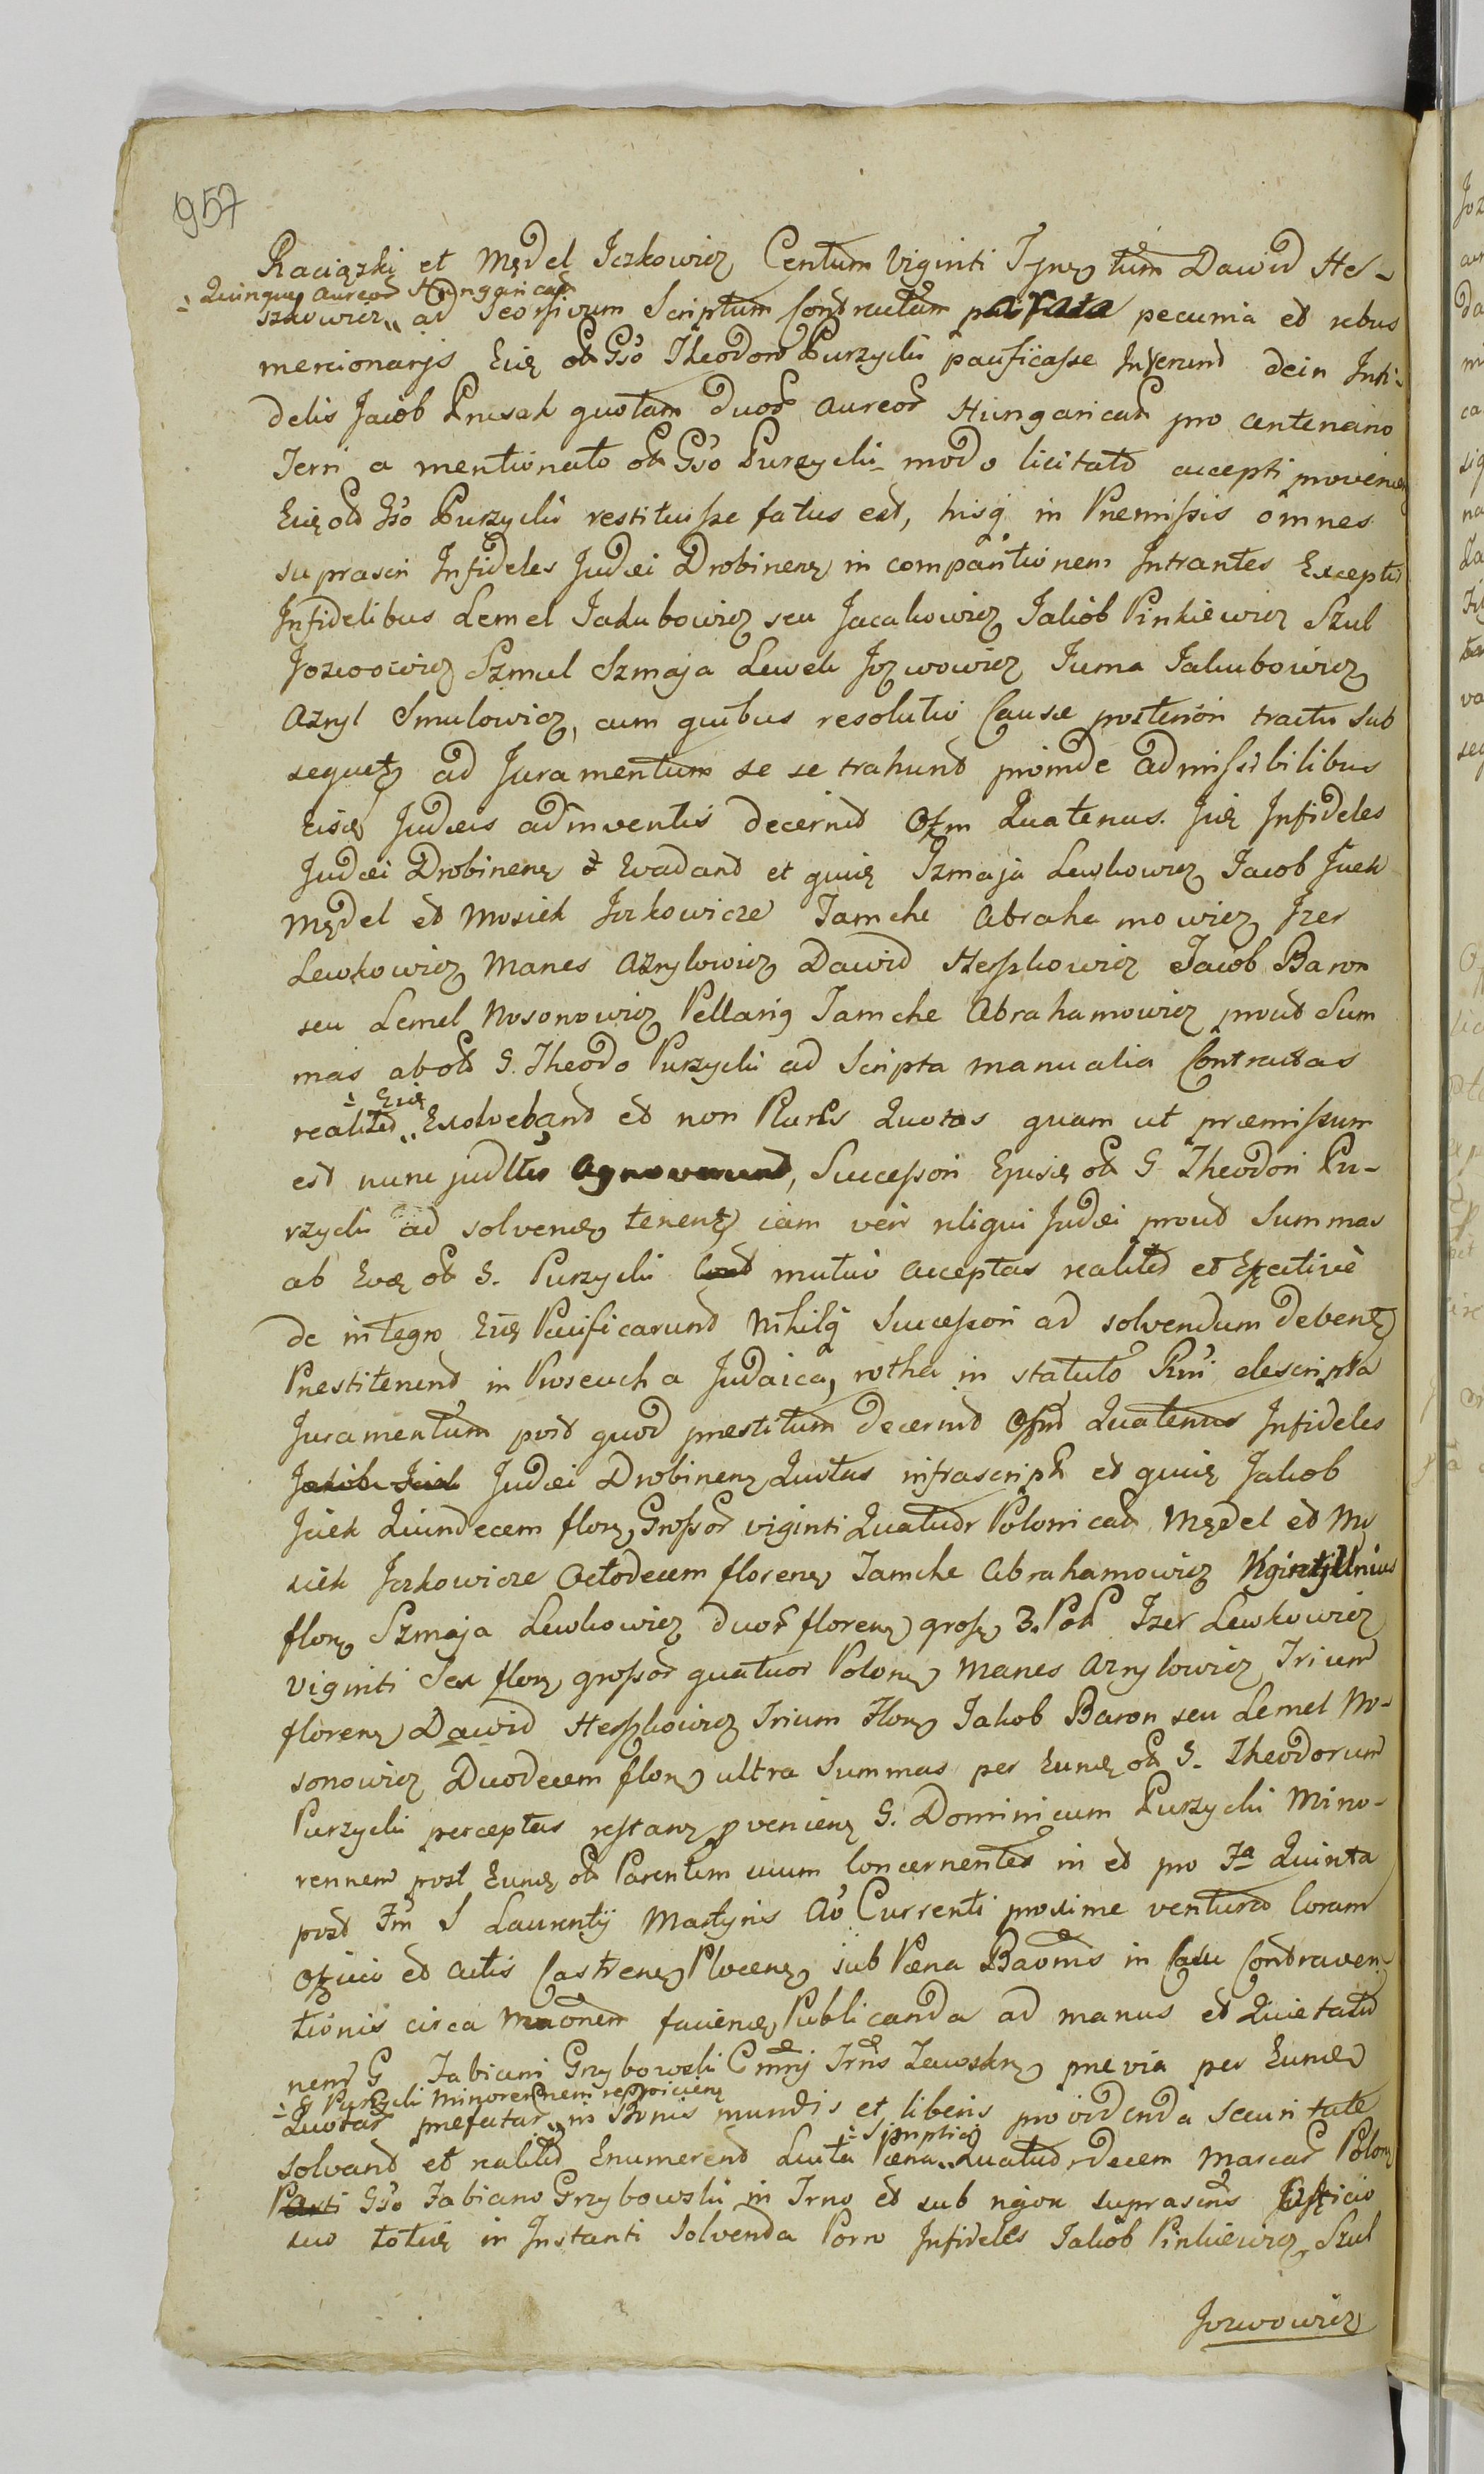 957
Raciązki et Mędel Jczkowicz Centum Viginti Tym tum Dawid Hes-
Quinque aureor Hungarical
szkowicz ad Seorsivum Scriptum Contractum pecunia et rebus
mercionarys Eię olt Gso Theodoro Purzycki pacificasse dein Infi-
delis Jacob Prusak quotam duor aureor Hungarical pro centenario
Ferri a mentionato olt Gso Purzycki modo licitato accepti provenien
Eię olt Gso Purzycki restituisse fatus est, hisq in Premissis omnes
suprascri Infideles Judæi Drobinens in comparitionem Intrantes Exceptis
Infidelibus Lemel Jakubowicz seu Jacakowicz Jakob Pinkiewicz Szul
Jozwowicz Szmul Szmaja Lewek Jozwowicz Juma Jakubowicz
Azryl Smulowicz, cum quibus resolutio Causæ posteriori tractu sub
sequet ad Juramentum se se trahunt proinde admissibilibus
Eisd Judæis adinventis decernit Offm Quatenus Iię Infideles
Judæi Drobinens Evadant et quię Szmaja Lewkowicz Jacob Juek
Mędel et Mosiek Jczkowicze Jamche Abrahamowicz Jzer
Lewkowicz Manes Azrylowicz Dawid Heszkowicz Jacob Baron
seu Lemel Nosonowicz Pellarig Jamche Abrahamowicz prout Sum
mas ab olt G. Theodo Purzycki ad Scripta manualia Contractas
Eię
realiter Exolvebant et non Plures Quotas quam ut præmissum
est nunc judltr Agnoverunt, Successori Ejusd olt G Theodori Pu-
rzycki ad solvend tenent iam vero reliqui Judæi prout Summas
ab Eoę olt G. Purzycki mutuo acceptas realiter et Effective
de integro Eię Pacificarunt Nihilq Successori ad solvendum debent
Prestiterint in Proseucha Judaica rotha in statuto Rni descripta
Juramentum post quod prestitum decernit Offm Quatenus Infideles
Judæi Drobinens Quotas infrascript et quię Jakob
Juek Quindecem flors Grossor viginti Quatuor Polonical Mędel et Mo
siek Jczkowicze Octodecem florens Jamche Abrahamowicz Viginti Unius
flors Szmaja Lewkowicz duor florens gross 3. Pol Jzer Lewkowicz
Viginti Sex flors grossor quatuor Polons Manes Azrylowicz Trium
florens Dawid Heszkowicz Trium Flors Jakob Baron seu Lemel No-
sonowicz Duodecem flors ultra Summas per Eund olt G. Theodorum
Purzycki perceptas restans proveniens G. Dominicum Purzycki Mino-
rennem post Eund olt Parentem suum concernentes in et pro Fa Quinta
post Fm S Laurentij Martyris Ao Currenti proxime venturo Coram
Offcio et Actis Castrens Plocens sub Pæna Baonis in Casu Contraven-
tionis circa faciend Publicanda ad manus et Quietatio
nem G Fabiani Grzybowski prævia per Eund
G Purzycki Minorennem respiciens
Quotar prefatar in Bonis mundis et liberis providenda Securitate
Simplici
solvant et realiter Enumerent Luita Pæna Quatuordecem Marcar Polons
Parti Gso Fabiano Grzybowski in Trno et sub rigore suprascrns
suo totię in Instanti Solvenda Porro Infideles Jakob Pinkiewicz Szul
Jozwowicz